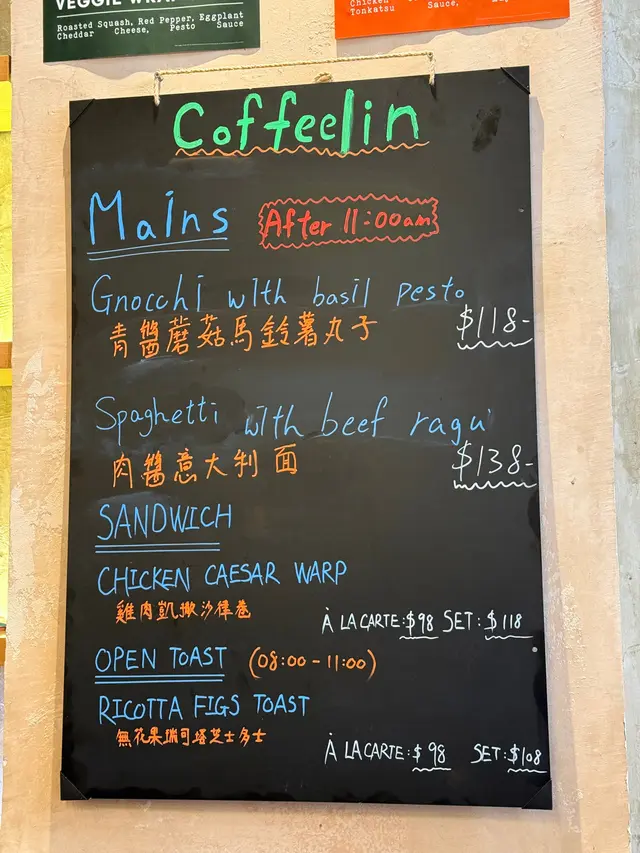 VEGGIE WRAP
Roasted Squash, Red Pepper, Eggplant
Cheddar Cheese, Pesto Sauce
Chicken
Tonkatsu Sauce,
Coffeelin
Mains After 11:00am
Gnocchi with basil pesto
青醬蘑菇馬鈴薯丸子 $118-
Spaghetti with beef ragu
肉醬意大利面 $138-
SANDWICH
CHICKEN CAESAR WARP
雞肉凱撒沙律卷
À LA CARTE:$98 SET:$118
OPEN TOAST (08:00-11:00)
RICOTTA FIGS TOAST
無花果瑞可塔芝士多士
À LA CARTE:$98 SET:$108